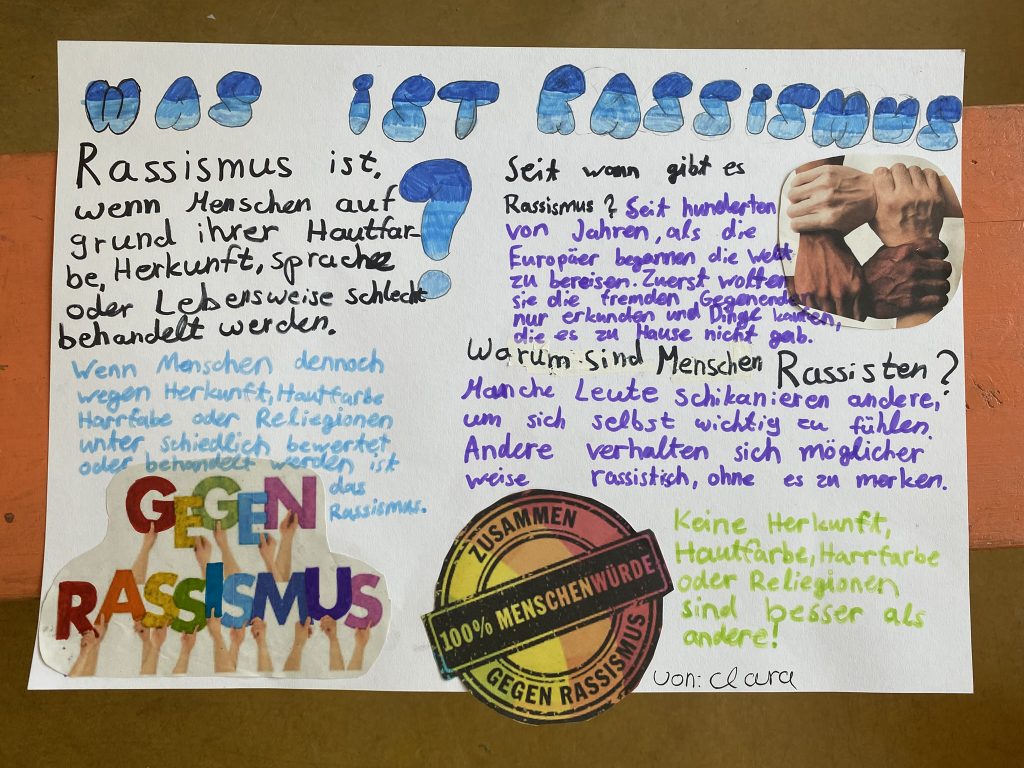 WAS IST RASSISMUS
?
Rassismus ist,
wenn Menschen auf
grund ihrer Hautfar-
be, Herkunft, sprache
oder Lebensweise schlecht
behandelt werden.
Wenn Menschen dennoch
wegen Herkunft, Hautfarbe
Harrfabe oder Reliegionen
unter schiedlich bewertet
oder behandelt werden ist
das
Rassismus.
GEGEN
RASSISMUS
Seit wann gibt es
Rassismus? Seit hunderten
von Jahren, als die
Europäer begannen die Welt
zu bereisen. Zuerst wolten
sie die fremden Gegenenden
nur erkunden und Dinge kaufen,
die es zu Hause nicht gab.
Warum sind Menschen Rassisten?
Manche Leute schikanieren andere,
um sich selbst wichtig zu fühlen.
Andere verhalten sich möglicher
weise rassistich, ohne es zu merken.
ZUSAMMEN
100% MENSCHENWÜRDE
GEGEN RASSISMUS
Keine Herkunft,
Hautfarbe, Harrfarbe
oder Reliegionen
sind besser als
andere!
von: clara